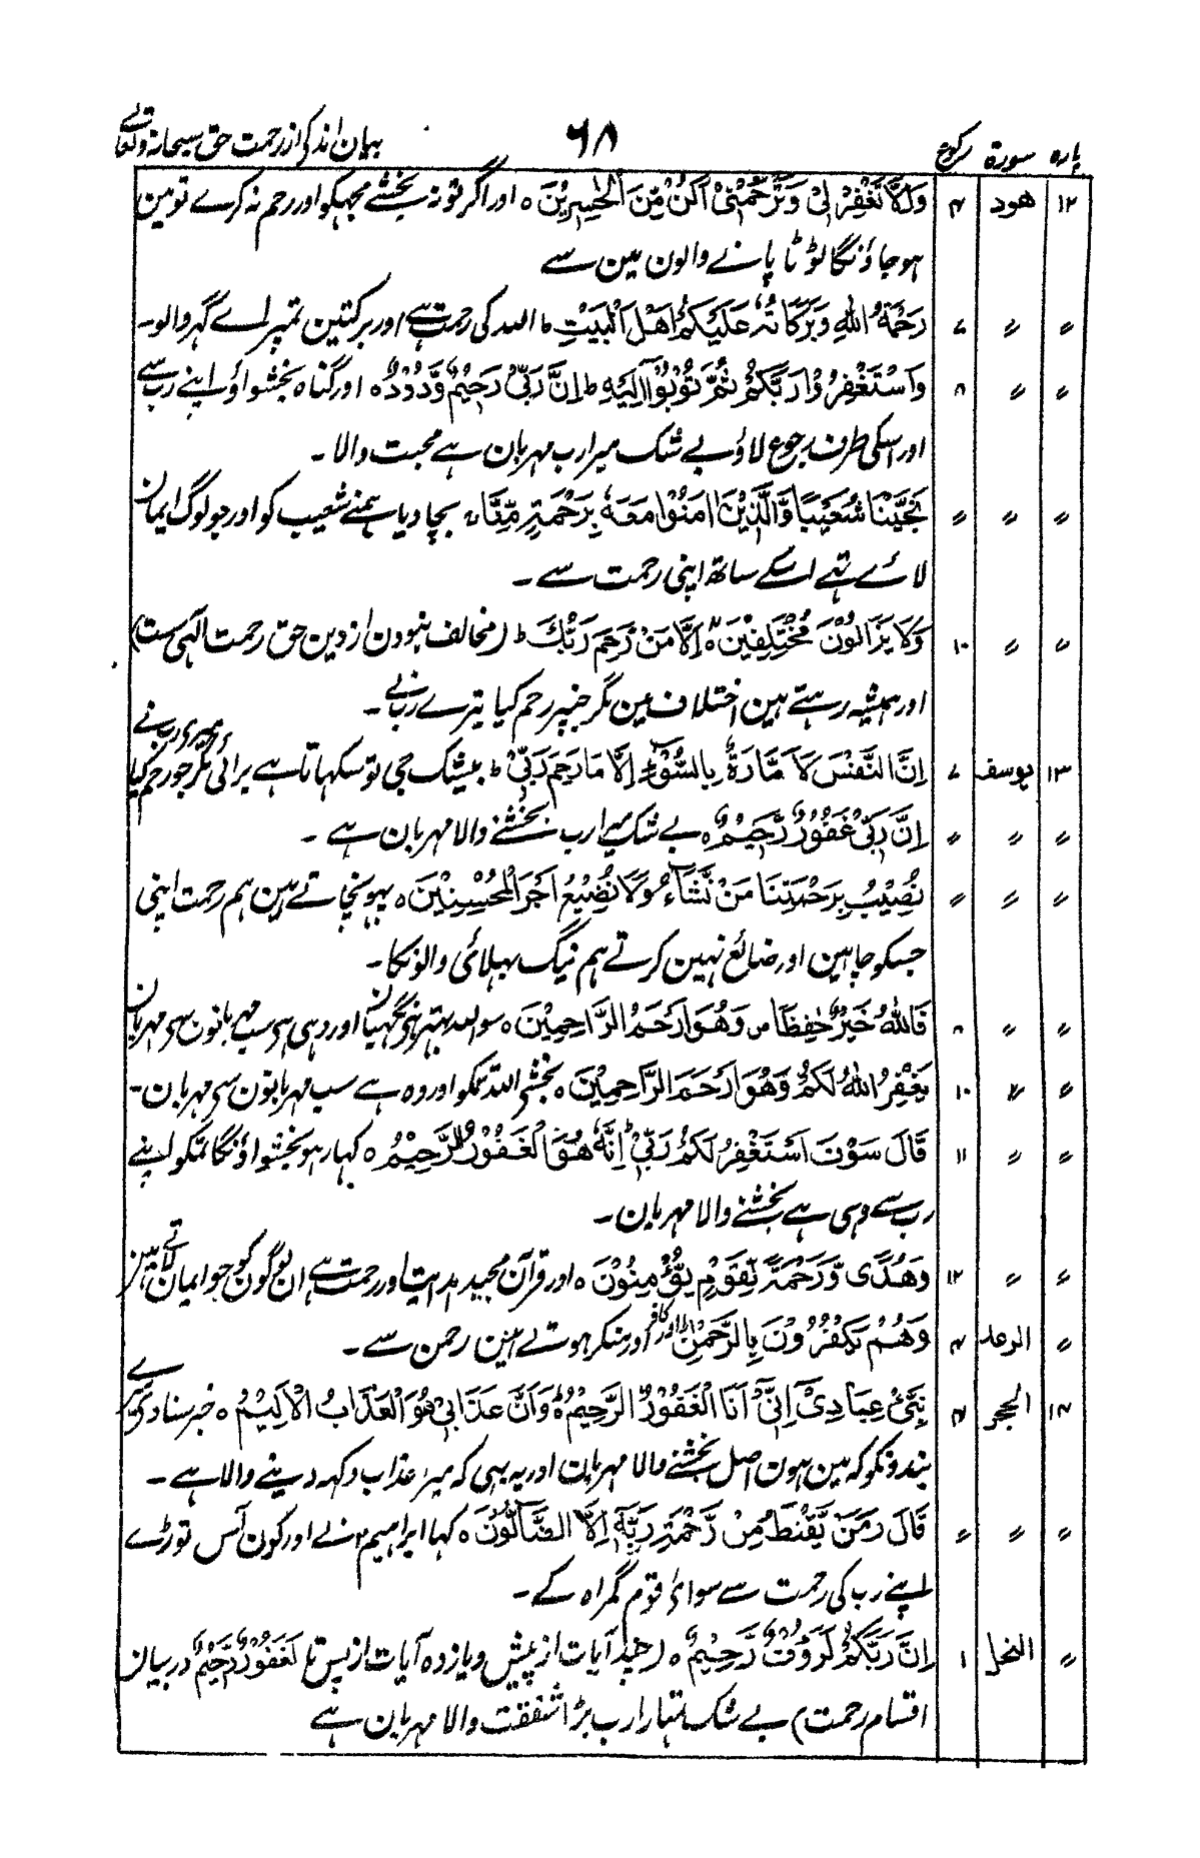 پارہ سورۃ رکوع ۶۸ بیان اندکی از رحمت حق سبحانہ وتعالے
۱۲ ھود ۴ وَاِلَّا تَغْفِرْ لِیْ وَتَرْحَمْنِیْ اَکُنْ مِّنَ الْخٰسِرِیْنَ ہ اور اگر تو نہ بخشے مجہکو اور رحم نہ کرے تو مین
ہو جاؤنگا ٹوٹا پانے والون مین سے
〃 〃 ۷ رَحْمَۃُ اللّٰہِ وَبَرَکَاتُہٗ عَلَیْکُمْ اَھْلَ الْبَیْتِ ط اللہ کی رحمت ہے اور برکتین تمپر اے گہر والو۔
〃 〃 ۸ وَاسْتَغْفِرُوْا رَبَّکُمْ ثُمَّ تُوْبُوْٓا اِلَیْہِ ط اِنَّ رَبِّیْ رَحِیْمٌ وَّدُوْدٌ ہ اور گناہ بخشواؤ اپنے رب سے
اور اسکی طرف رجوع لاؤ بے شک میرا رب مہربان ہے محبت والا۔
〃 〃 〃 نَجَّیْنَا شُعَیْبًا وَّالَّذِیْنَ اٰمَنُوْا مَعَہٗ بِرَحْمَۃٍ مِّنَّا ۔ بچا دیا ہمنے شعیب کو اور جو لوگ ایمان
لائے تہے اسکے ساتھ اپنی رحمت سے۔
〃 〃 ۱۰ وَلَا یَزَالُوْنَ مُخْتَلِفِیْنَ ہ اِلَّا مَنْ رَّحِمَ رَبُّکَ ط (مخالف نبودن از دین حق رحمت آلہی ست)
اور ہمیشہ رہتے ہین اختلاف مین مگر جنپر رحم کیا تیرے رب نے۔
۱۳ یوسف ۷ اِنَّ النَّفْسَ لَاَمَّارَۃٌ بِالسُّوْٓءِ اِلَّا مَا رَحِمَ رَبِّیْ ط بیشک جی تو سکہاتا ہے برائی مگر جو رحم کیا میری رب نے
〃 〃 〃 اِنَّ رَبِّیْ غَفُوْرٌ رَّحِیْمٌ ہ بے شک میرا رب بخشنے والا مہربان ہے۔
〃 〃 〃 نُصِیْبُ بِرَحْمَتِنَا مَنْ نَّشَآءُ وَلَا نُضِیْعُ اَجْرَ الْمُحْسِنِیْنَ ہ پہونچاتے ہین ہم رحمت اپنی
جسکو چاہین اور ضائع نہین کرتے ہم نیگ بہلائی والونکا۔
〃 〃 ۸ فَاللّٰہُ خَیْرٌ حٰفِظًا ص وَھُوَ اَرْحَمُ الرَّاحِمِیْنَ ہ سو اللہ بہتر ہی نگہبان اور وہی ہی سب مہربانون سی مہربان
〃 〃 ۱۰ یَغْفِرُ اللّٰہُ لَکُمْ وَھُوَ اَرْحَمُ الرَّاحِمِیْنَ ہ بخشی اللہ تمکو اور وہ ہے سب مہربانون سی مہربان۔
〃 〃 ۱۱ قَالَ سَوْفَ اَسْتَغْفِرُ لَکُمْ رَبِّیْ اِنَّہٗ ھُوَ الْغَفُوْرُ الرَّحِیْمُ ہ کہا رہو بخشواؤنگا تمکو اپنے
رب سے وہی ہے بخشنے والا مہربان۔
〃 〃 ۱۲ وَھُدًی وَّرَحْمَۃً لِّقَوْمٍ یُّؤْمِنُوْنَ ہ اور قرآن مجید ہدایت اور رحمت ہے ان لوگون کو جو ایمان لاتے ہین
〃 الرعد ۴ وَھُمْ یَکْفُرُوْنَ بِالرَّحْمٰنِ ط اور کافر اور منکر ہوتے ہین رحمن سے۔
۱۴ الحجر ۴ نَبِّیْ عِبَادِیْٓ اَنِّیْٓ اَنَا الْغَفُوْرُ الرَّحِیْمُ وَاَنَّ عَذَابِیْ ھُوَ الْعَذَابُ الْاَلِیْمُ ہ خبر سنا دے میرے
بندونکو کہ مین ہون اصل بخشنے والا مہربان اور یہ بہی کہ میرا عذاب دکہہ دینے والا ہے۔
〃 〃 〃 قَالَ وَمَنْ یَّقْنَطُ مِنْ رَّحْمَۃِ رَبِّہٖٓ اِلَّا الضَّآلُّوْنَ ہ کہا ابراہیم نے اور کون آس توڑے
اپنے رب کی رحمت سے سوائے قوم گمراہ کے۔
〃 النحل ۱ اِنَّ رَبَّکُمْ لَرَءُوْفٌ رَّحِیْمٌ ہ (چند آیات از پیش و یازدہ آیات از پس تا لَغَفُوْرٌ رَّحِیْمٌ در بیان
اقسام رحمت) بے شک تمہارا رب بڑا شفقت والا مہربان ہے